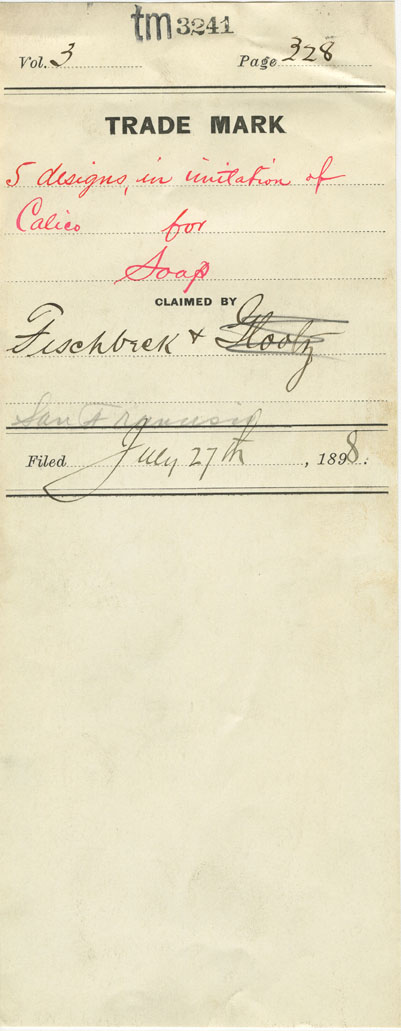 tm 3241
Vol. 3 Page 328
TRADE MARK
5 designs, in imitation of
Calico for
Soap
CLAIMED BY
Fischbeck &
San Francisco
Filed July 27th, 1898.